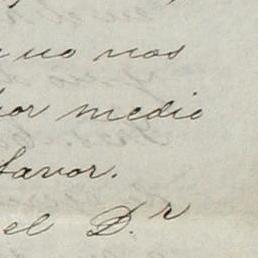 no nos
por medio
favor.
el D.r